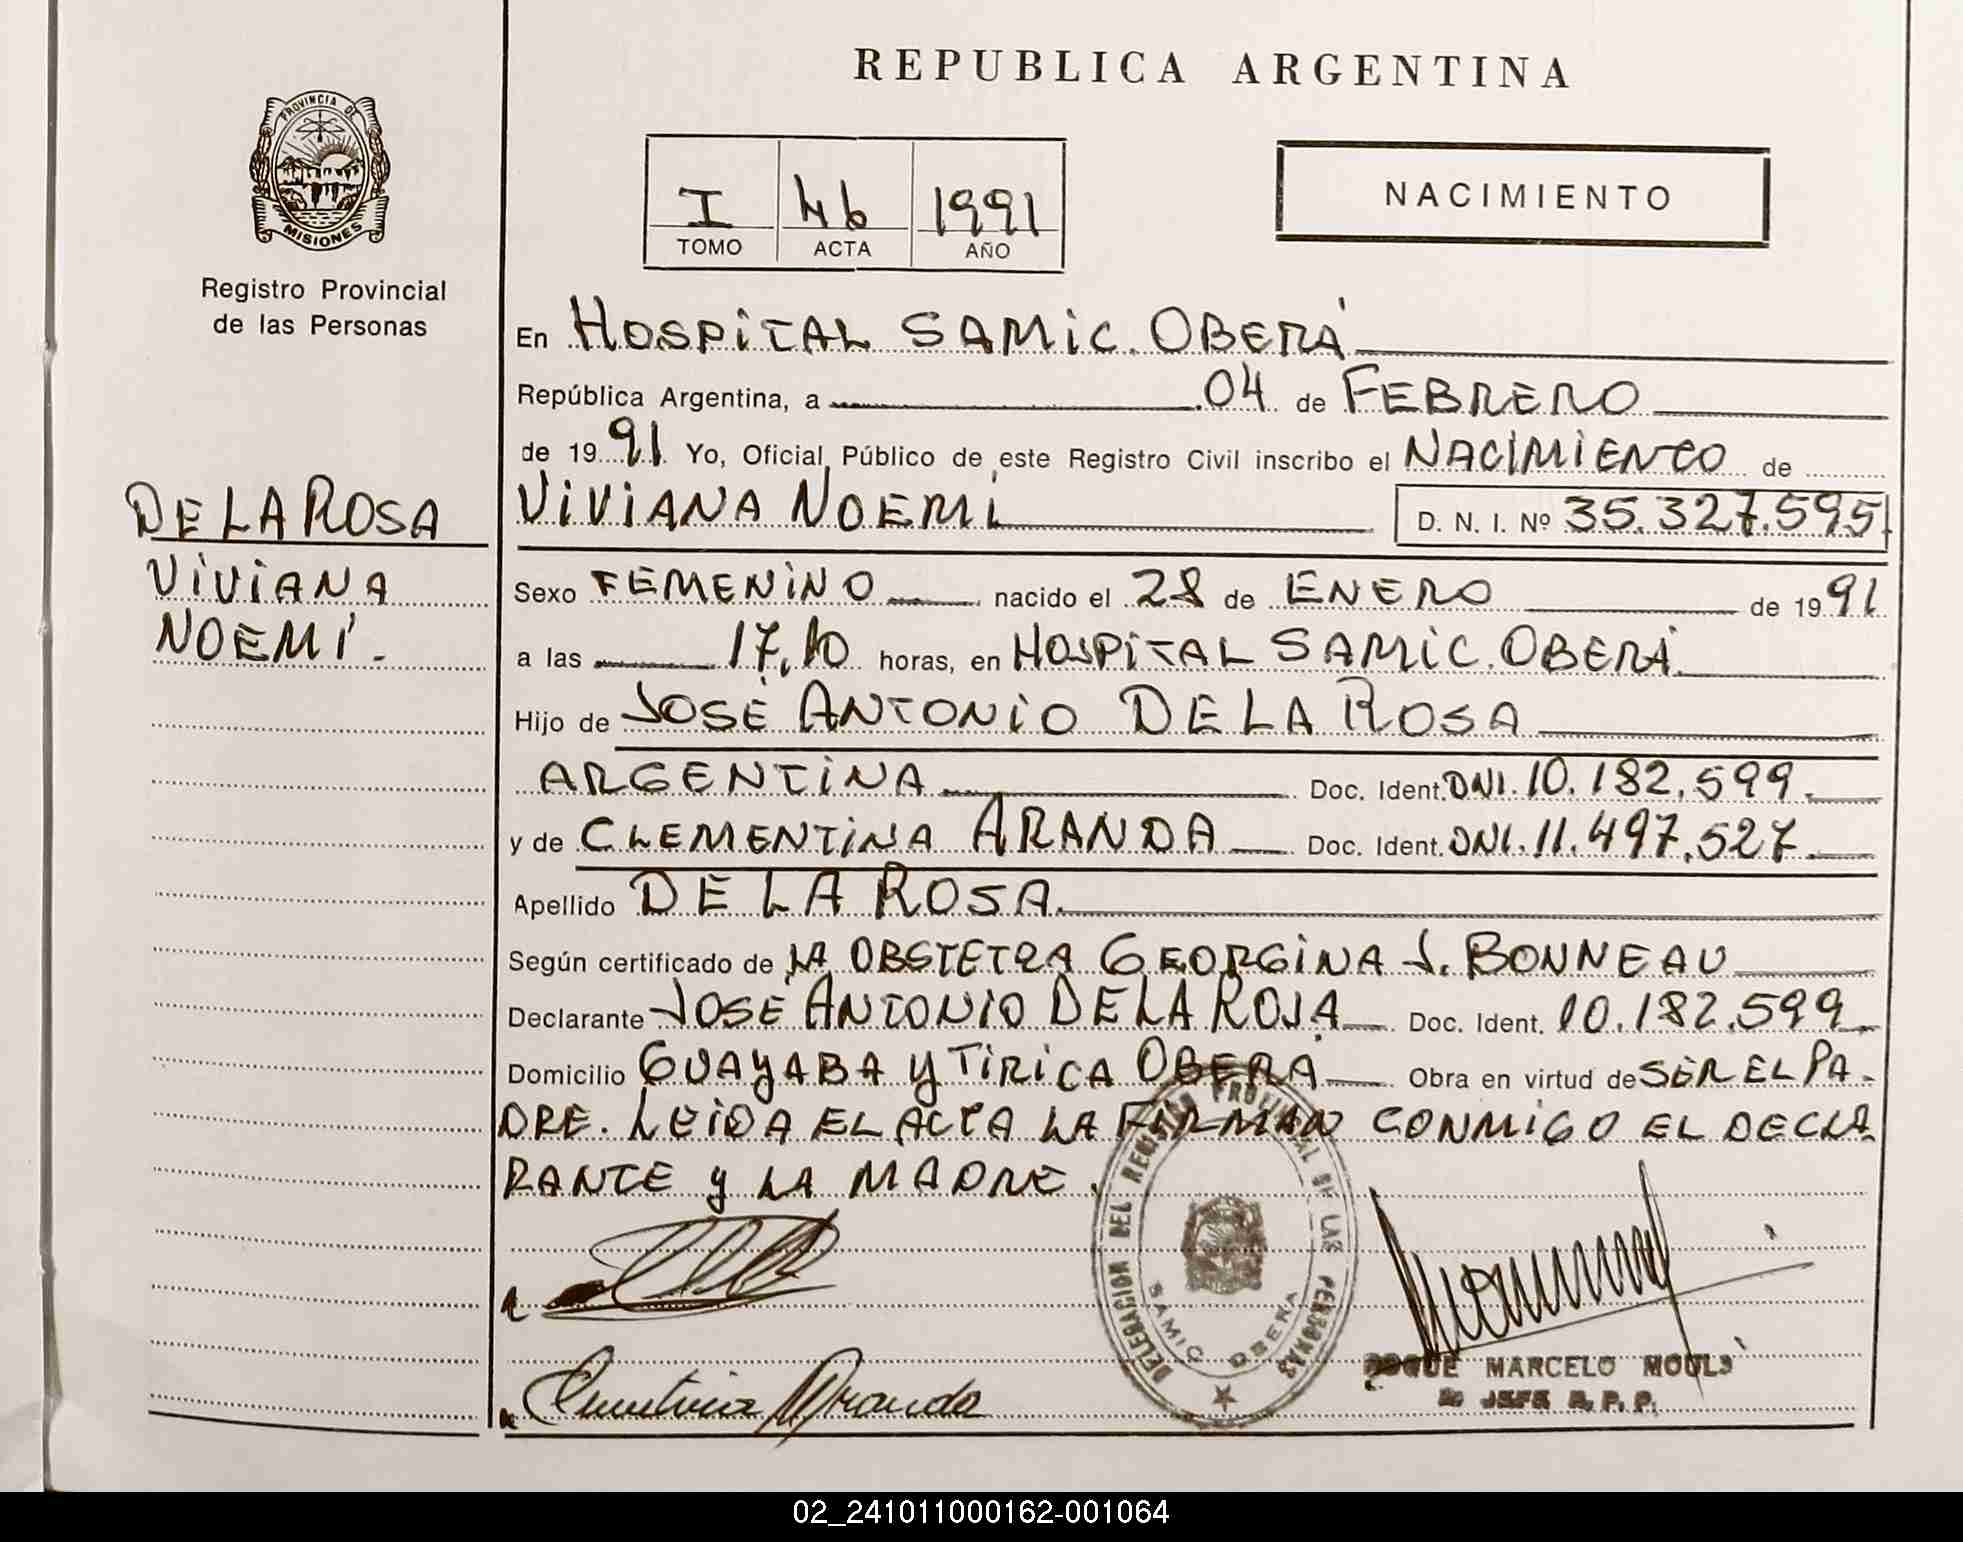 REPUBLICA ARGENTINA
PROVINCIA DE
MISIONES
Registro Provincial
de las Personas
I 46 1991
TOMO ACTA AÑO
NACIMIENTO
DE LA ROSA
VIVIANA
NOEMÍ.
En HOSPITAL SAMIC. OBERÁ
República Argentina, a 04 de FEBRERO
de 1991 Yo, Oficial Público de este Registro Civil inscribo el NACIMIENTO de
VIVIANA NOEMÍ D. N. I. Nº 35.327.595
Sexo FEMENINO nacido el 28 de ENERO de 1991
a las 17,10 horas, en HOSPITAL SAMIC. OBERÁ
Hijo de JOSÉ ANTONIO DE LA ROSA
ARGENTINA Doc. Ident. DNI. 10.182.599.
y de CLEMENTINA ARANDA Doc. Ident. DNI. 11.497.527
Apellido DE LA ROSA.
Según certificado de LA OBSTETRA GEORGINA J. BONNEAU
Declarante JOSÉ ANTONIO DE LA ROSA Doc. Ident. 10.182.599
Domicilio GUAYABA Y TIRICA OBERÁ Obra en virtud de SER EL PA-
DRE. LEIDA EL ACTA LA FIRMAN CONMIGO EL DECLA
RANTE y LA MADRE.
DELEGACION DEL REGISTRO PROVINCIAL DE LAS PERSONAS
SAMIC OBERA
Clementina Aranda
ROQUE MARCELO MOULS
JEFE R.P.P.
02_241011000162-001064